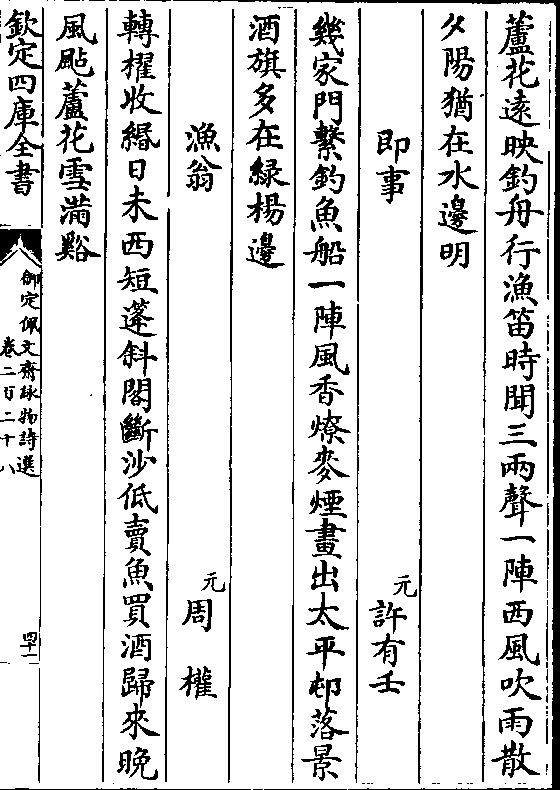 蘆花遠映釣舟行漁笛時聞三兩聲一陣西風吹雨散
夕陽猶在水邊明
即事
元
許有壬
幾家門繫釣魚船一陣風香燎麥煙畫出太平邨落景
酒旗多在綠楊邊
漁翁
元
周權
轉櫂收緡日未西短蓬斜閣斷沙低賣魚買酒歸來晚
風颭蘆花雪滿谿
欽定四庫全書
御定佩文齋詠物詩選
卷二百二十八
四十一